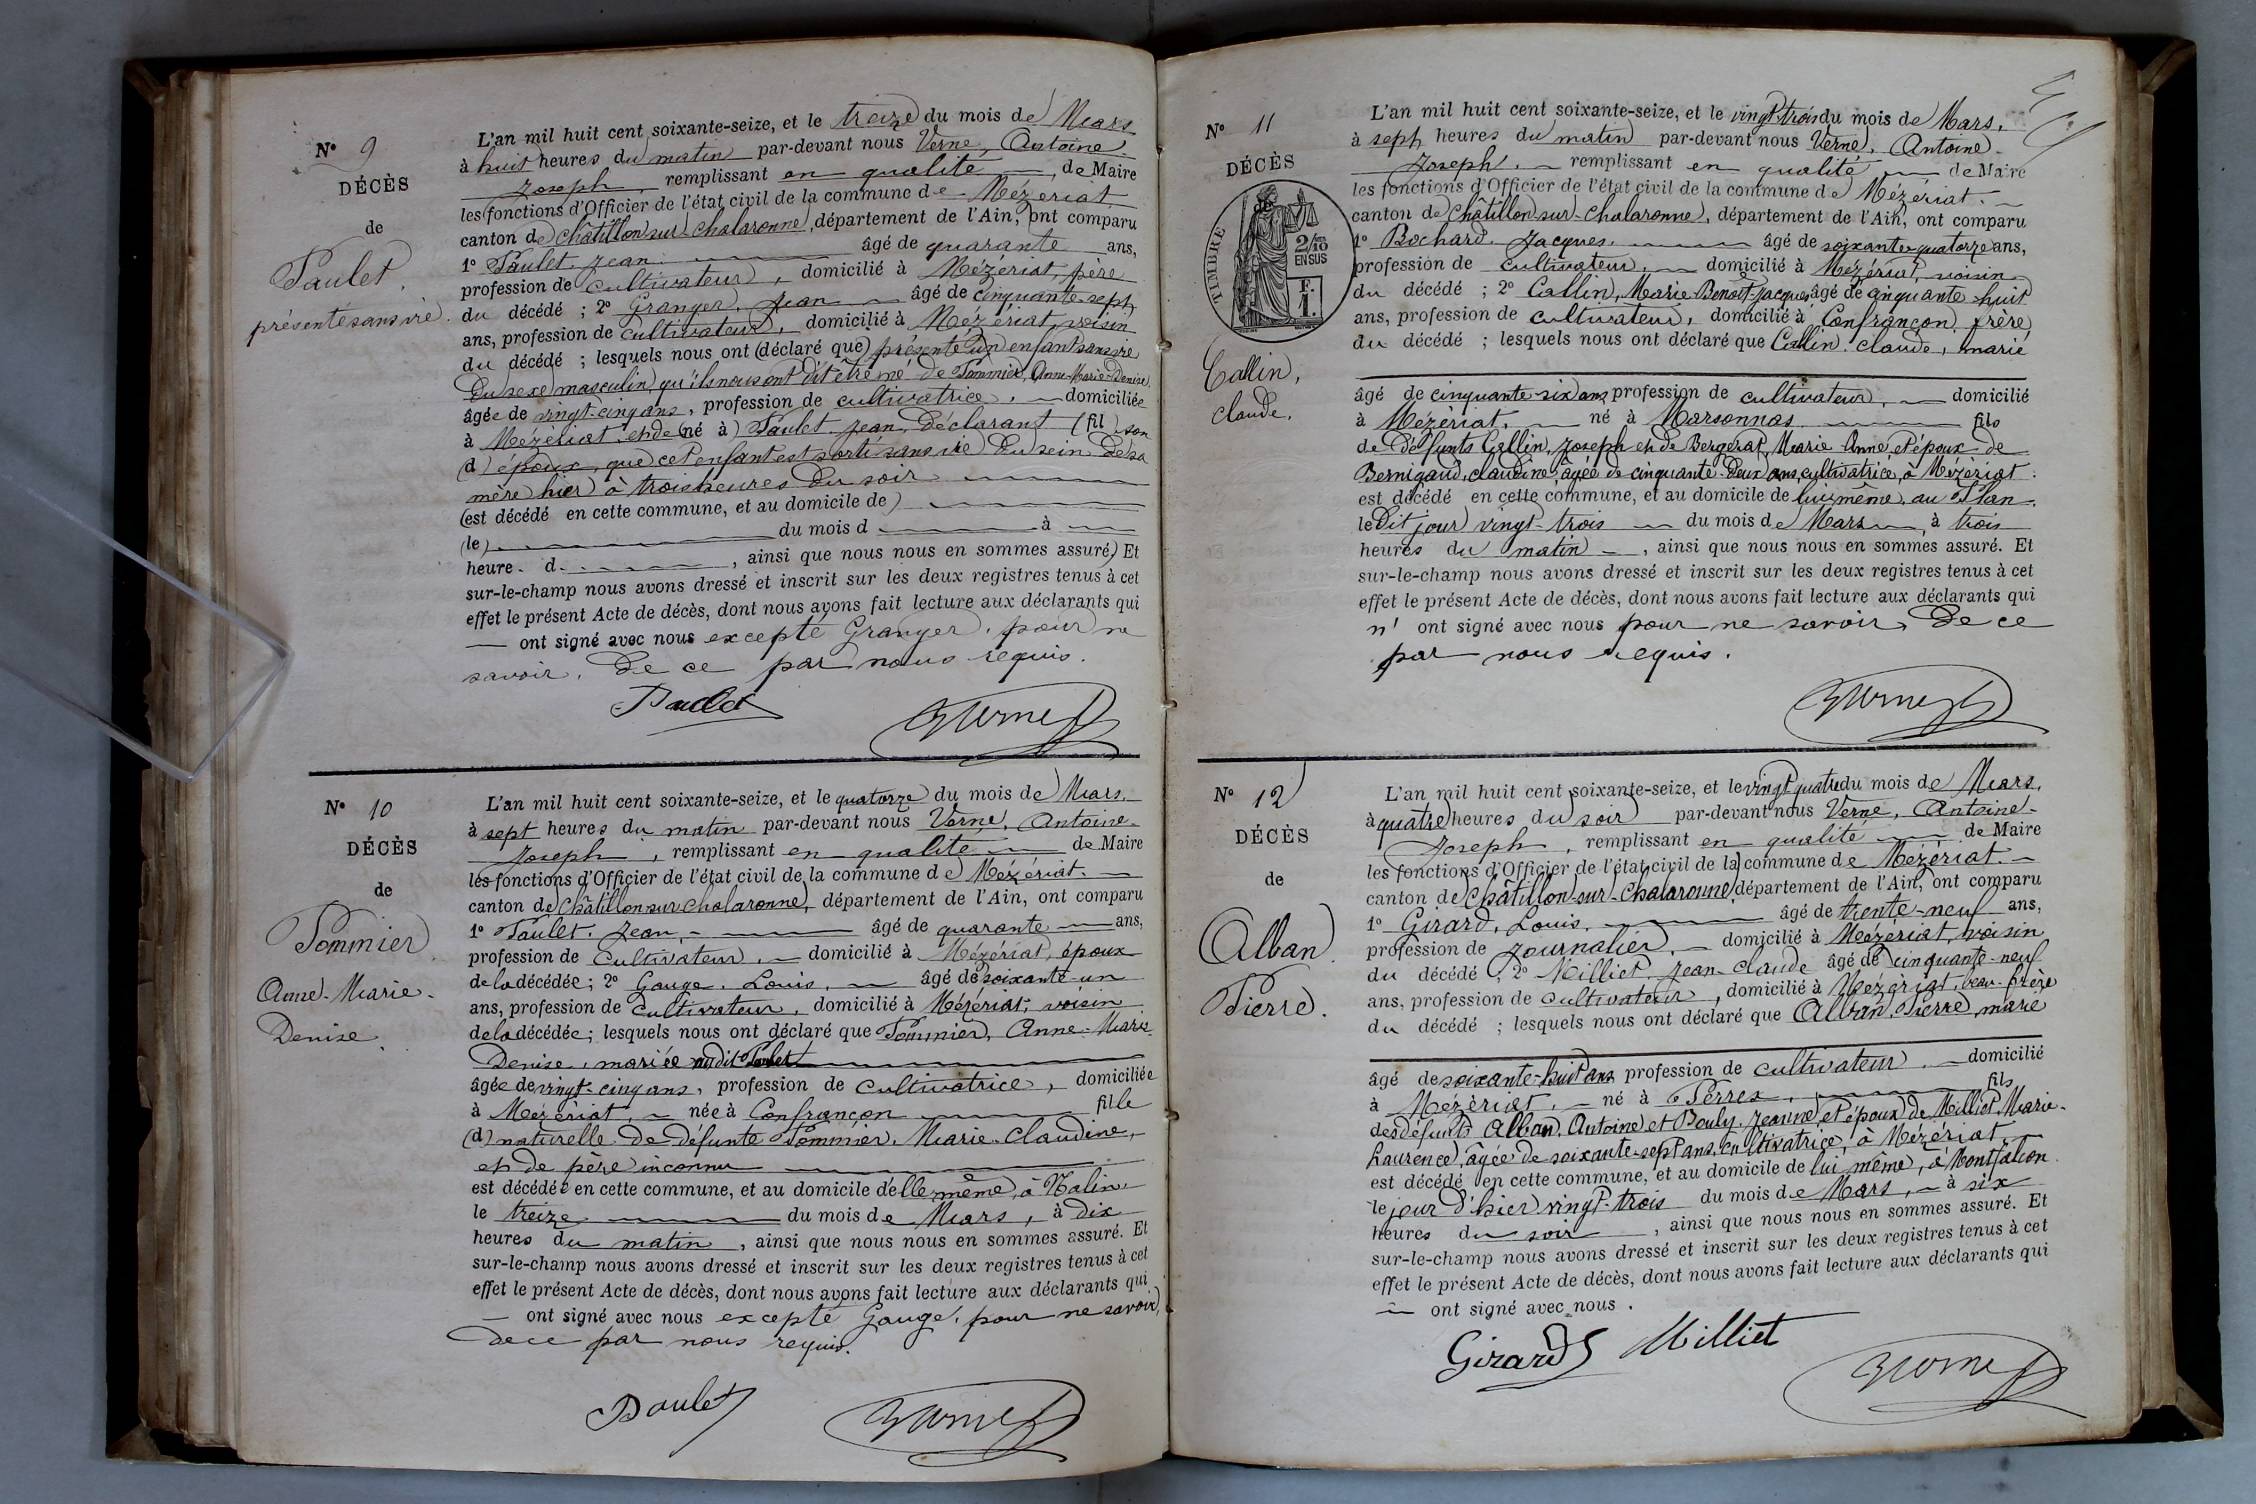 N° 9
DÉCÈS
de
Paulet,
présenté sans vie.
L'an mil huit cent soixante-seize, et le treize du mois de Mars
à huit heures du matin par-devant nous Verne, Antoine
Joseph, remplissant en qualité de Maire
les fonctions d'Officier de l'état civil de la commune de Mézériat.
canton de Châtillon sur Chalaronne, département de l'Ain, ont comparu
1° Paulet, Jean âgé de quarante ans,
profession de cultivateur, domicilié à Mézériat, père
du décédé ; 2° Granger, Jean âgé de cinquante-sept
ans, profession de cultivateur, domicilié à Mézériat, voisin
du décédé ; lesquels nous ont (déclaré que) présenté un enfant sans vie
du sexe masculin qu'ils nous ont dit être né de Pommier, Anne-Marie-Denise,
âgée de vingt-cinq ans, profession de cultivatrice, domiciliée
à Mézériat, et de (né à) Paulet Jean, déclarant (fil) son
(d) époux, que cet enfant est sorti sans vie du sein de sa
mère hier à trois heures du soir
(est décédé en cette commune, et au domicile de)
(le) du mois d à
heure d , ainsi que nous nous en sommes assuré,) Et
sur-le-champ nous avons dressé et inscrit sur les deux registres tenus à cet
effet le présent Acte de décès, dont nous avons fait lecture aux déclarants qui
— ont signé avec nous excepté Granger, pour ne
savoir, de ce par nous requis.
Paulet Verne
N° 10
DÉCÈS
de
Pommier
Anne-Marie-
Denise.
L'an mil huit cent soixante-seize, et le quatorze du mois de Mars,
à sept heures du matin par-devant nous Verne, Antoine-
Joseph, remplissant en qualité de Maire
les fonctions d'Officier de l'état civil de la commune de Mézériat.
canton de Châtillon sur Chalaronne, département de l'Ain, ont comparu
1° Paulet, Jean, âgé de quarante ans,
profession de Cultivateur, domicilié à Mézériat, époux
de la décédée ; 2° Gauge, Louis, âgé de soixante-un
ans, profession de Cultivateur, domicilié à Mézériat, voisin
de la décédée ; lesquels nous ont déclaré que Pommier, Anne-Marie
Denise, mariée audit Paulet
âgée de vingt-cinq ans, profession de Cultivatrice, domiciliée
à Mézériat, née à Confrançon fille
(d) naturelle de défunte Pommier, Marie-Claudine,
et de père inconnu
est décédée en cette commune, et au domicile d'elle même, à Nalin,
le treize du mois de Mars, à dix
heures du matin, ainsi que nous nous en sommes assuré. Et
sur-le-champ nous avons dressé et inscrit sur les deux registres tenus à cet
effet le présent Acte de décès, dont nous avons fait lecture aux déclarants qui
— ont signé avec nous excepté Gauge, pour ne savoir,
de ce par nous requis.
Paulet Verne
N° 11
DÉCÈS
de
TIMBRE 2/10 EN SUS F. 1.
Callin,
Claude.
L'an mil huit cent soixante-seize, et le vingt-trois du mois de Mars,
à sept heures du matin par-devant nous Verne, Antoine-
Joseph, remplissant en qualité de Maire
les fonctions d'Officier de l'état civil de la commune de Mézériat.
canton de Châtillon-sur-Chalaronne, département de l'Ain, ont comparu
1° Bochard, Jacques, âgé de soixante-quatorze ans,
profession de cultivateur, domicilié à Mézériat, voisin
du décédé ; 2° Callin, Marie-Benoît-Jacques, âgé de cinquante-huit
ans, profession de cultivateur, domicilié à Confrançon, frère
du décédé ; lesquels nous ont déclaré que Callin, Claude, marié
âgé de cinquante-six ans profession de cultivateur, domicilié
à Mézériat, né à Marsonnas fils
de défunts Callin, Joseph et de Bergerat, Marie Anne, et époux de
Bernigaud, Claudine, âgée de cinquante-deux ans, cultivatrice, à Mézériat,
est décédé en cette commune, et au domicile de lui même, au Plan,
le dit jour vingt-trois du mois de Mars, à trois
heures du matin, ainsi que nous nous en sommes assuré. Et
sur-le-champ nous avons dressé et inscrit sur les deux registres tenus à cet
effet le présent Acte de décès, dont nous avons fait lecture aux déclarants qui
n' ont signé avec nous pour ne savoir, de ce
par nous requis.
Verne
N° 12
DÉCÈS
de
Alban,
Pierre.
L'an mil huit cent soixante-seize, et le vingt quatre du mois de Mars,
à quatre heures du soir par-devant nous Verne, Antoine-
Joseph, remplissant en qualité de Maire
les fonctions d'Officier de l'état civil de la commune de Mézériat.
canton de Châtillon-sur-Chalaronne, département de l'Ain, ont comparu
1° Girard, Louis, âgé de trente-neuf ans,
profession de journalier, domicilié à Mézériat, voisin
du décédé ; 2° Milliet, Jean-Claude âgé de cinquante-neuf
ans, profession de cultivateur, domicilié à Mézériat, beau-frère
du décédé ; lesquels nous ont déclaré que Alban, Pierre, marié
âgé de soixante-huit ans profession de cultivateur, domicilié
à Mézériat, né à Perrex, fils
des défunts Alban, Antoine et Bouly, Jeanne, et époux de Milliet, Marie-
Laurence, âgée de soixante-sept ans, cultivatrice, à Mézériat,
est décédé en cette commune, et au domicile de lui même, à Montfalcon
le jour d'hier vingt-trois du mois de Mars, à six
heures du soir, ainsi que nous nous en sommes assuré. Et
sur-le-champ nous avons dressé et inscrit sur les deux registres tenus à cet
effet le présent Acte de décès, dont nous avons fait lecture aux déclarants qui
— ont signé avec nous.
Girard Milliet
Verne